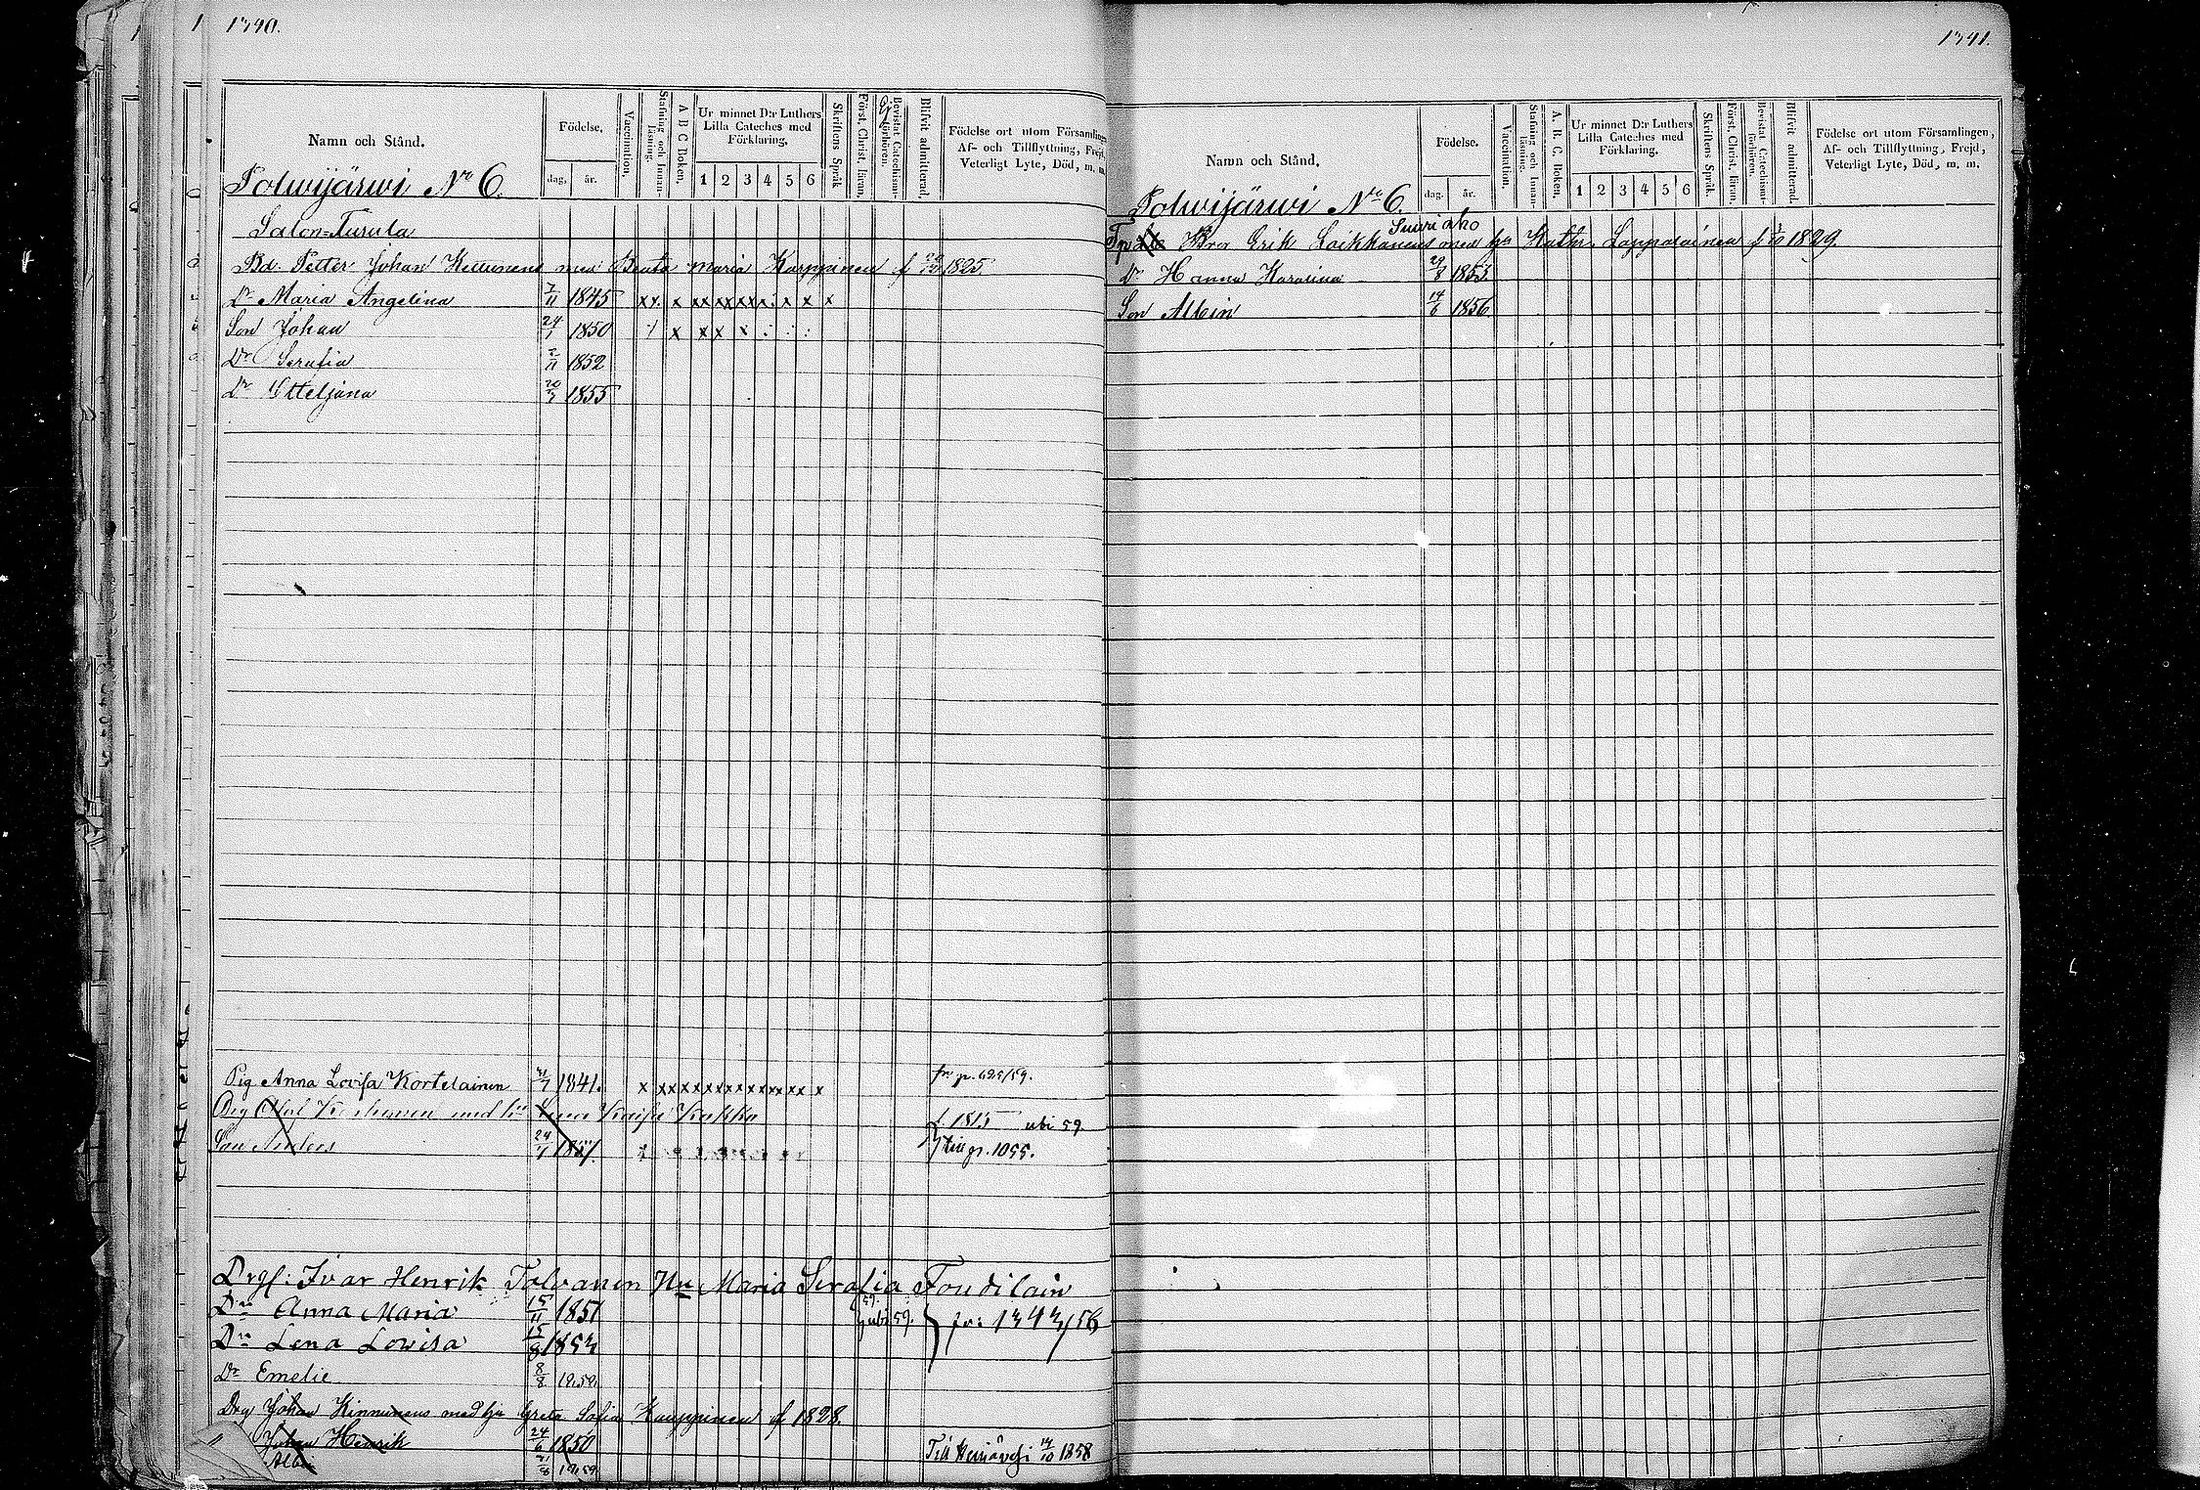 1340.
Namn och Stånd.
Födelse.
dag.
år.
Vaccination.
Stafning och Innanläsning.
A B C Boken.
Ur minnet D:r Luthers Lilla Cateches med Förklaring.
1 2 3 4 5 6
Skriftens Språk
Först. Christ. läran.
Bevistat Catechismiförhören.
Blifvit admitterad.
Födelse ort utom Församlingen,
Af- och Tillflyttning, Frejd,
Veterligt Lyte, Död, m. m.
Polwijärwi No 6.
Salon=Turula
Bd. Petter Johan Kettunens med Beata Maria Karppinen f 1825
Dr Maria Angelina 7/11 1845 xx x xx xx xx x x x
Son Johan 24/1 1850 x xx x
Dr Serafia 2/11 1852
Dr Ottetjana 20/3 1855
Pig Anna Lovisa Kortelainen 1841. x xx x x x x x x x x x x x fr p. 625/59.
Drg med hu Kaisa f. 1815 ubi 59.
Son Anders 24/ till p. 1055.
Drgs: Ivar Henrik Tolvanen Hu Maria Serafia Toudilain
Dr Anna Maria 15/11 1851 ubi 59. fr: 1343/56
Dr Lena Lowisa 15/8 1853
Dr Emelie 8/8
Drg Johan Kinnunens med hu Greta Sofia Kauppinen f 1828.
Johan Henrik 24/6 1850 Till Heinävesi 14/10 1858
Albin
1341.
Namn och Stånd.
Födelse.
dag.
år.
Vaccination.
Stafning och Innanläsning.
A. B. C. Boken.
Ur minnet D:r Luthers Lilla Cateches med Förklaring.
1 2 3 4 5 6
Skriftens Språk.
Först. Christ. läran.
Bevistat Catechismiförhören.
Blifvit admitterad.
Födelse ort utom Församlingen,
Af- och Tillflyttning, Frejd,
Veterligt Lyte, Död, m. m.
Polwijärwi No 6.
Suuriaho
Bror Erik Laikkanens med hu Kathr. Lappalainen f 3/10 1829.
Dr Hanna Katarina 29/8 1853.
Son Albin 14/6 1856